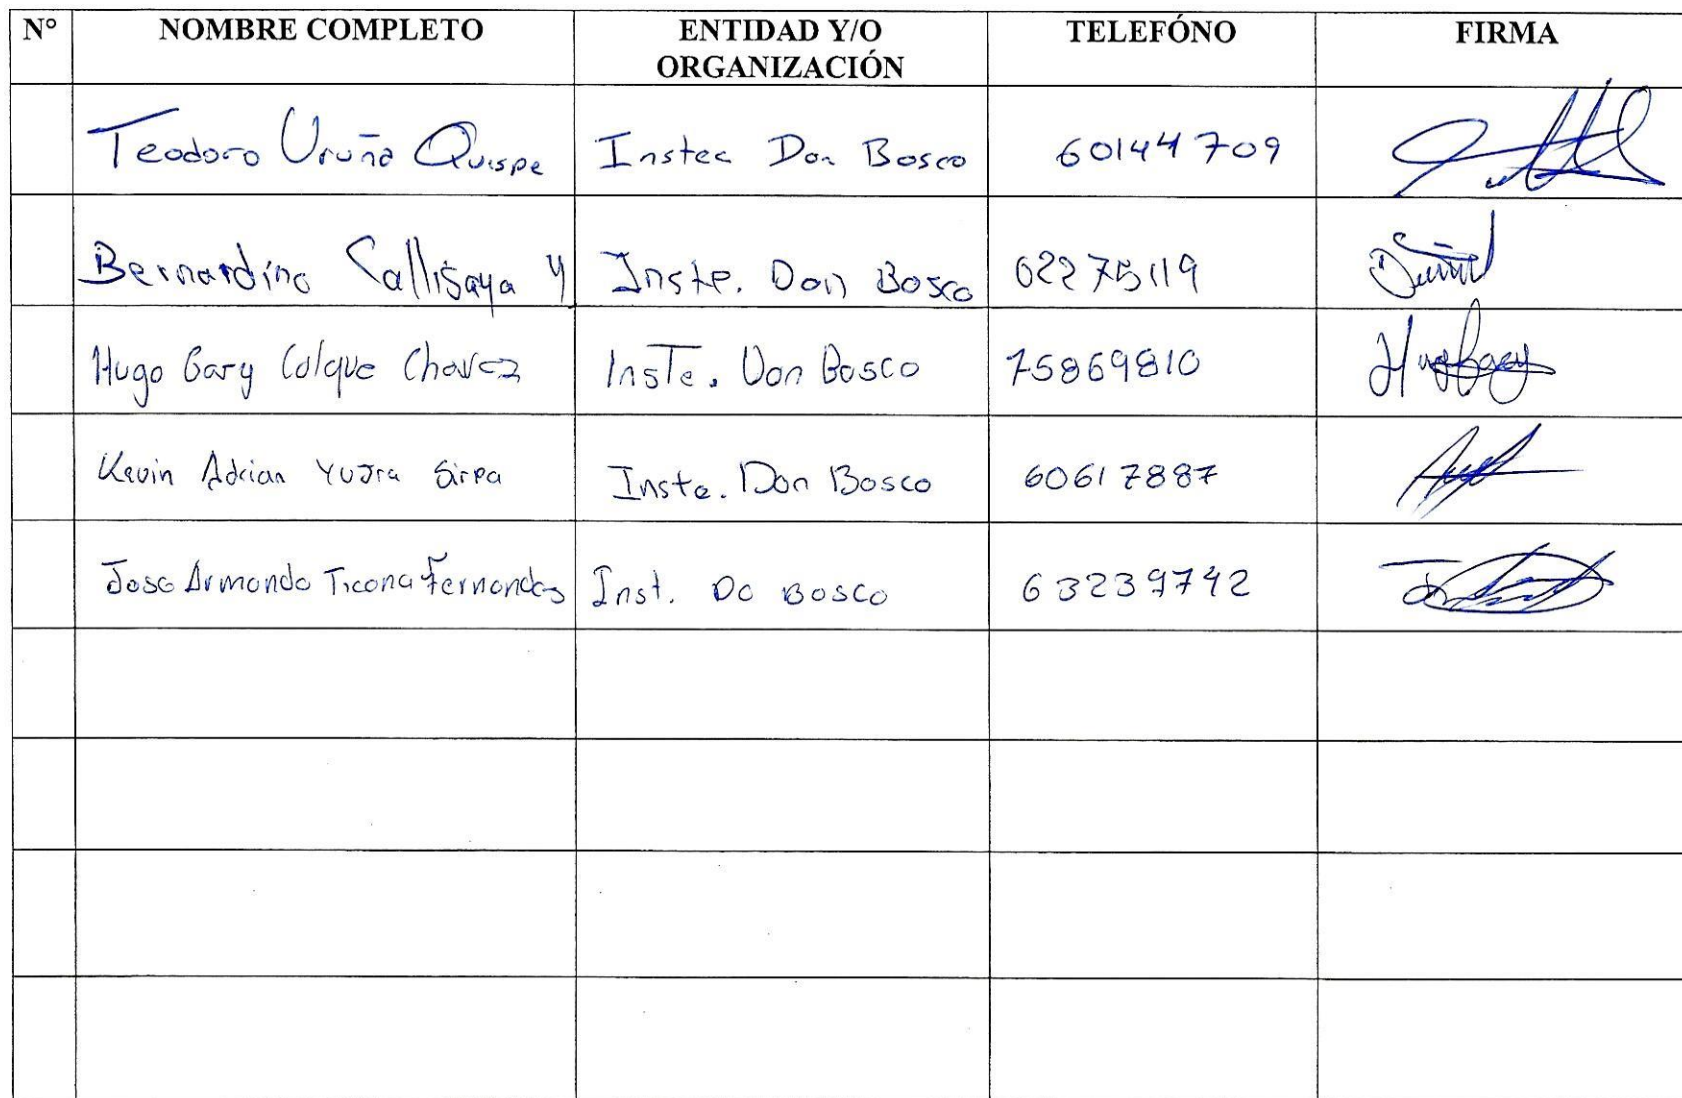 N° NOMBRE COMPLETO ENTIDAD Y/O ORGANIZACIÓN TELEFÓNO FIRMA
Teodoro Uruña Quispe Instec Don Bosco 60144709
Bernardino Callisaya Y Inste. Don Bosco 62275119
Hugo Gary Colque Chavez Inste. Don Bosco 75869810
Kevin Adrian Yujra Sirpa Inste. Don Bosco 60617887
Jose Armando Ticona Fernandez Inst. Do Bosco 63239742